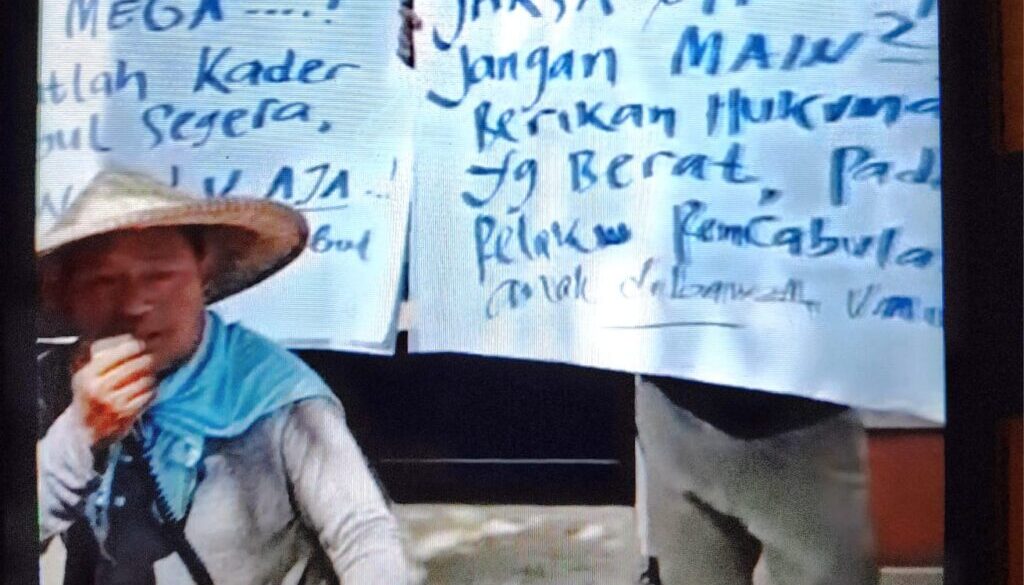 MEGA ....!
tlah Kader
bul Segera,
AJA ..!
bul
JAKSA
Jangan MAIN2
Berikan Hukuma
yg Berat, Pad
Pelaku Pencabula
anak dibawah Umu